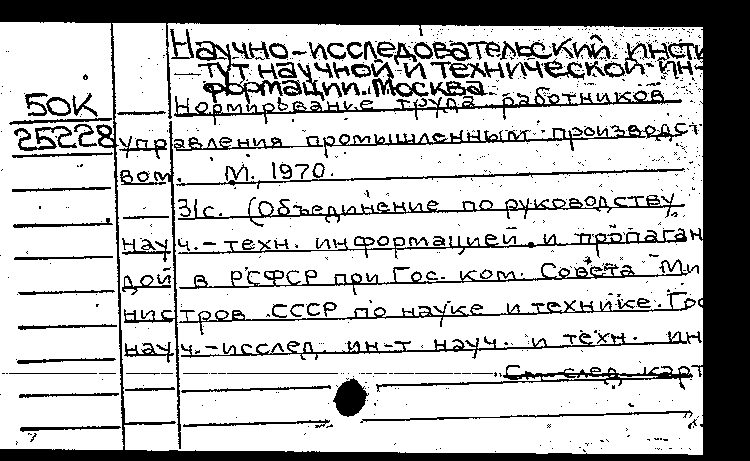 Научно-исследовательский инсти
тут научной и технической ин-
формации. Москва.
50К
Нормирование труда работников
25228
управления промышленным производст
вом. М., 1970.
31с. (Объединение по руководству
науч.-техн. информацией и пропаган
дой в РСФСР при Гос. ком. Совета Ми
нистров СССР по науке и технике. Гос
науч.-исслед. ин-т науч. и техн. ин
См. след. карт